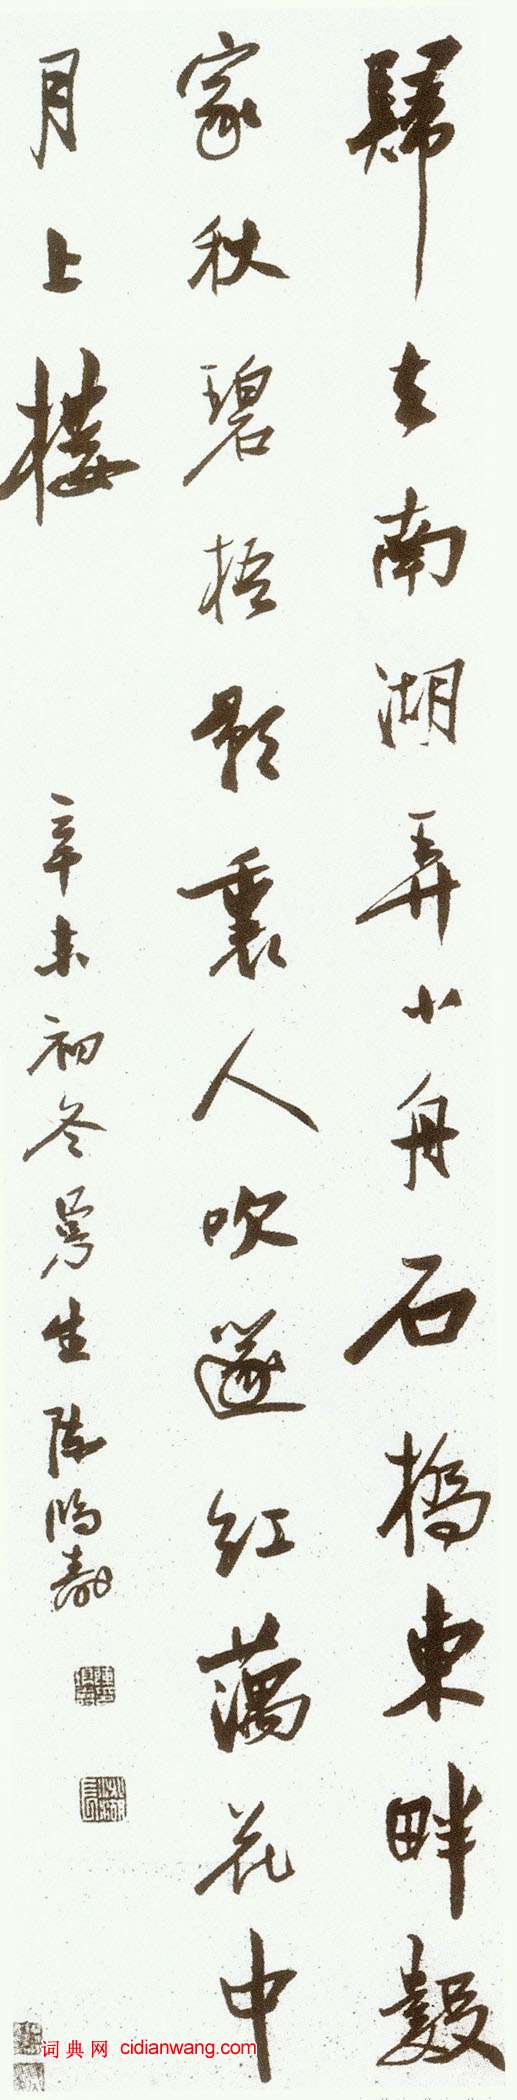 歸去南湖弄小舟石橋東畔數
家秋碧梧影裏人吹邃紅藕花中
月上樓
辛未初冬曼生陳鴻壽
词典网 cidianwang.com